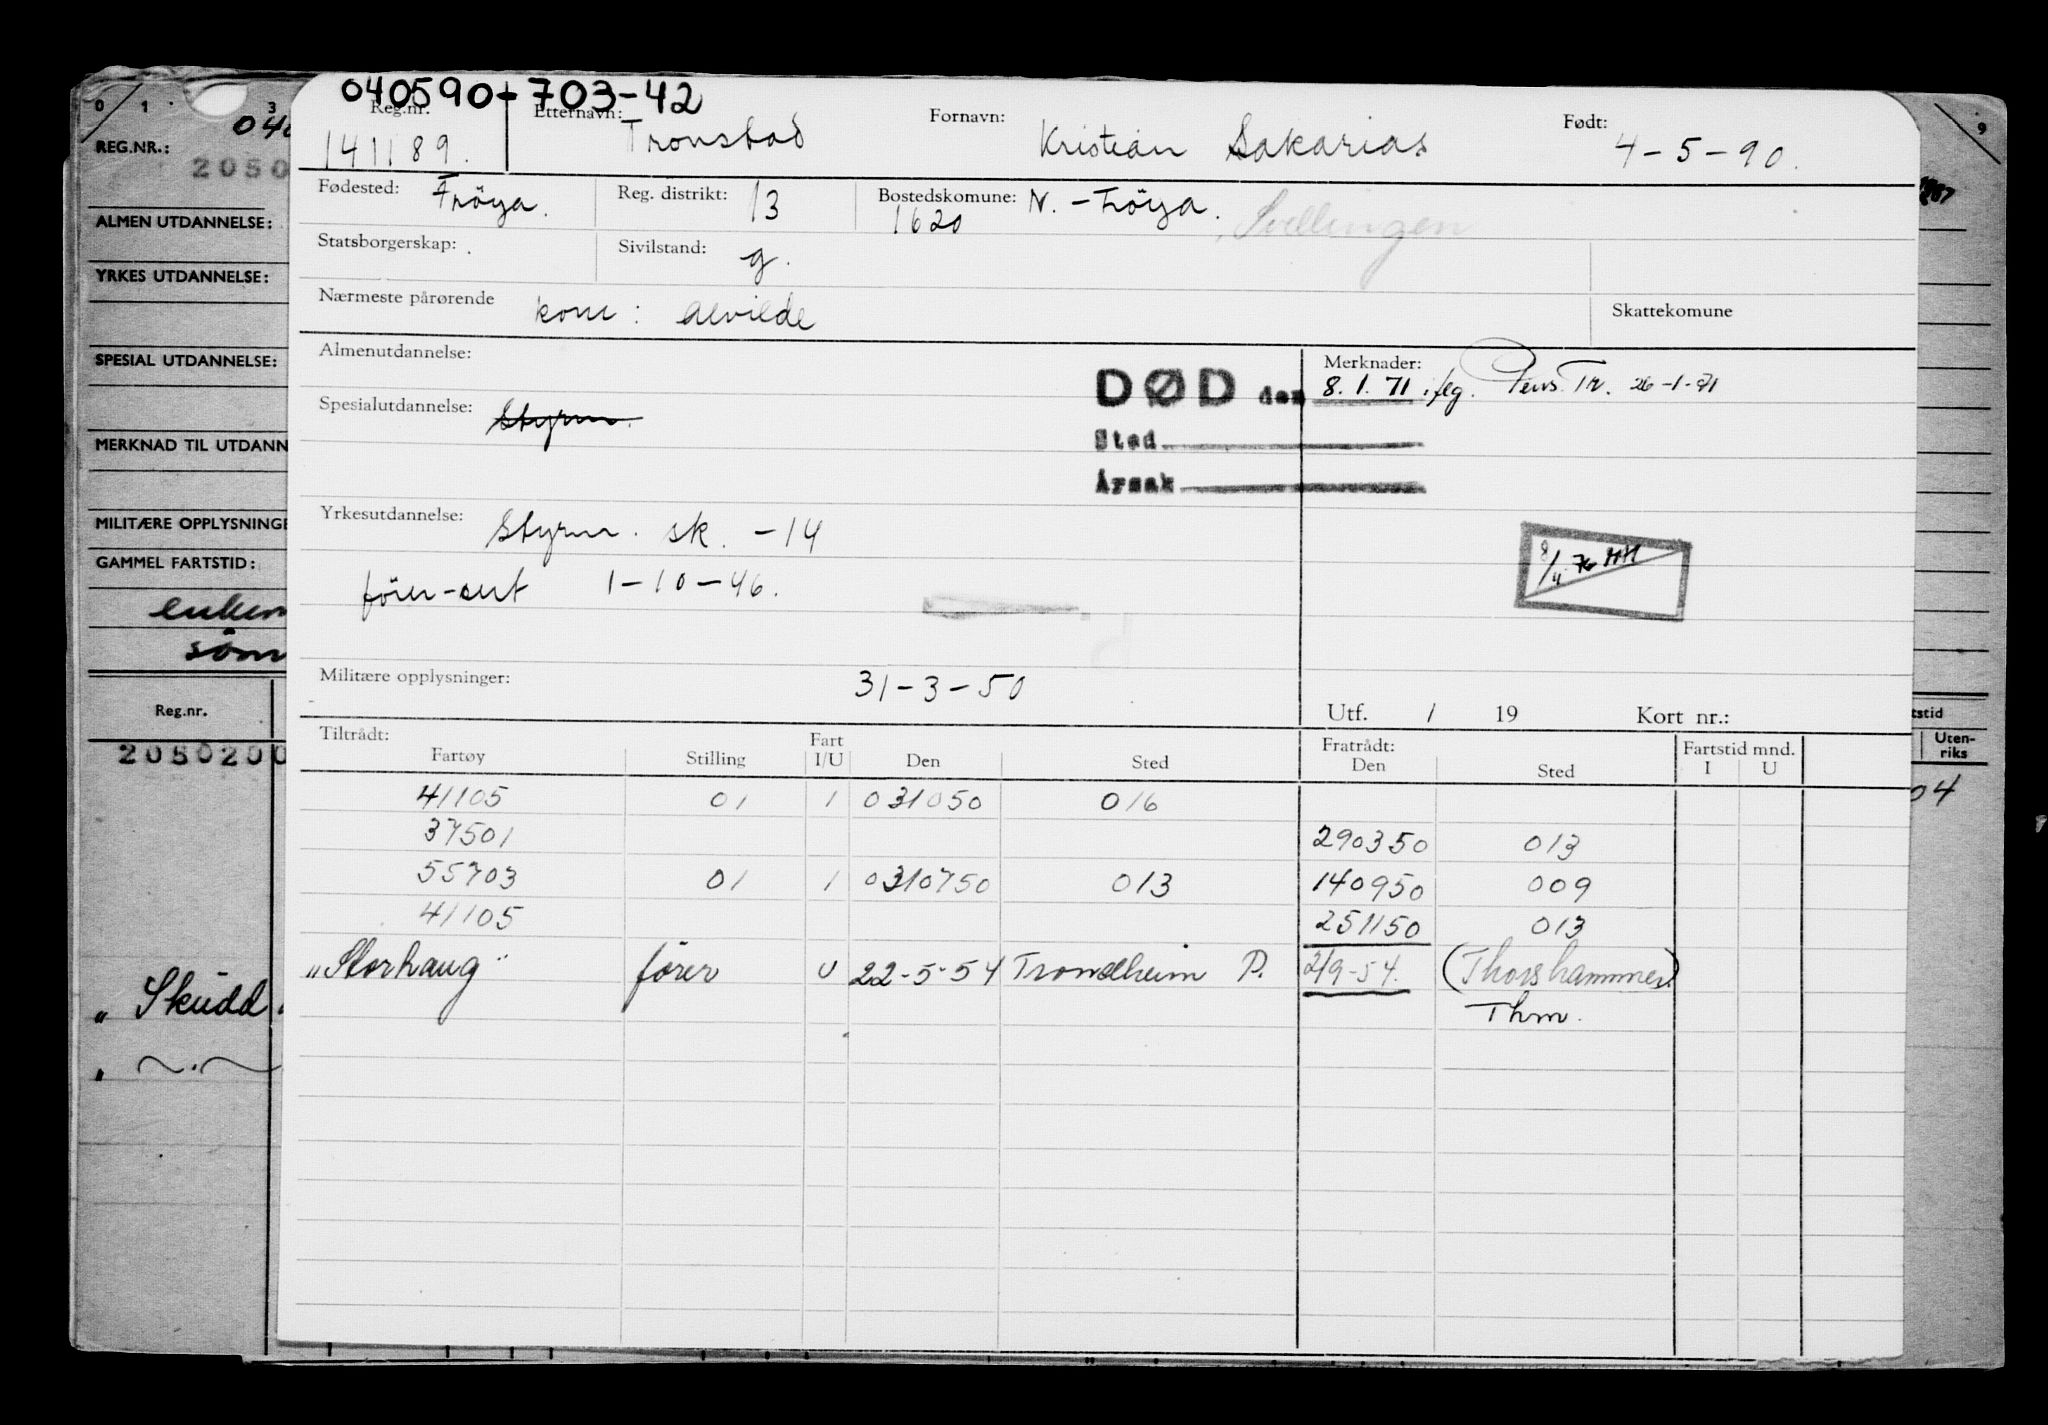 040590+703-42
Reg.nr. Etternavn: Tronstad Fornavn: Kristian Sakarias Født: 4-5-90.
141189.
Fødested: Fröya. Reg. distrikt: 13 Bostedskomune: N.-Fröya. Svellingen
1620
Statsborgerskap: Sivilstand: g.
Nærmeste pårørende kone: Alvilde Skattekomune
Almenutdannelse: Merknader:
DØD den 8.1.71 iflg. Pens. Tr. 26-1-71
Spesialutdannelse: Styrm.
Sted
Årsak
Yrkesutdannelse: Styrm. sk. -14
fører-sert 1-10-46.
8/4 76 HH
Militære opplysninger: 31-3-50
Utf. / 19 Kort nr.:
Tiltrådt: Fart Fratrådt: Fartstid mnd.
Fartøy Stilling I/U Den Sted Den Sted I U
41105 01 1 031050 016
37501 290350 013
55703 01 1 0310750 013 140950 009
41105 251150 013
"Storhaug" fører U 22-5-54 Trondheim P. 2/9-54. (Thorshammer)
Thm.
0 1 3
040
REG.NR.:
2050
ALMEN UTDANNELSE:
YRKES UTDANNELSE:
SPESIAL UTDANNELSE:
MERKNAD TIL UTDANN
MILITÆRE OPPLYSNINGE
GAMMEL FARTSTID:
Reg.nr.
2050200
"Skudd
9
tstid
Uten-
riks
04